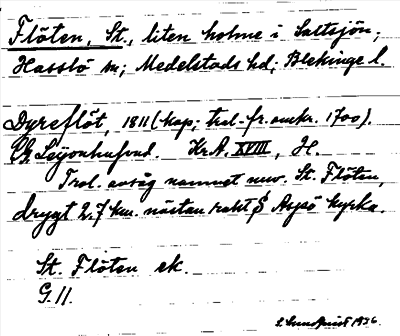 Flöten, St., liten holme i Saltsjön;
Hasslö sn; Medelstads hd; Blekinge l.
Dyreflöt, 1811 (kop; trol. fr. omkr. 1700).
Leijonhufvud. Kr. A. XVIII, H.
Trol. avsåg namnet nuv. St. Flöten,
drygt 2,7 km. nästan rakt S Aspö kyrka.
St. Flöten ek.
G. 11.
S. Sundquist 1936.